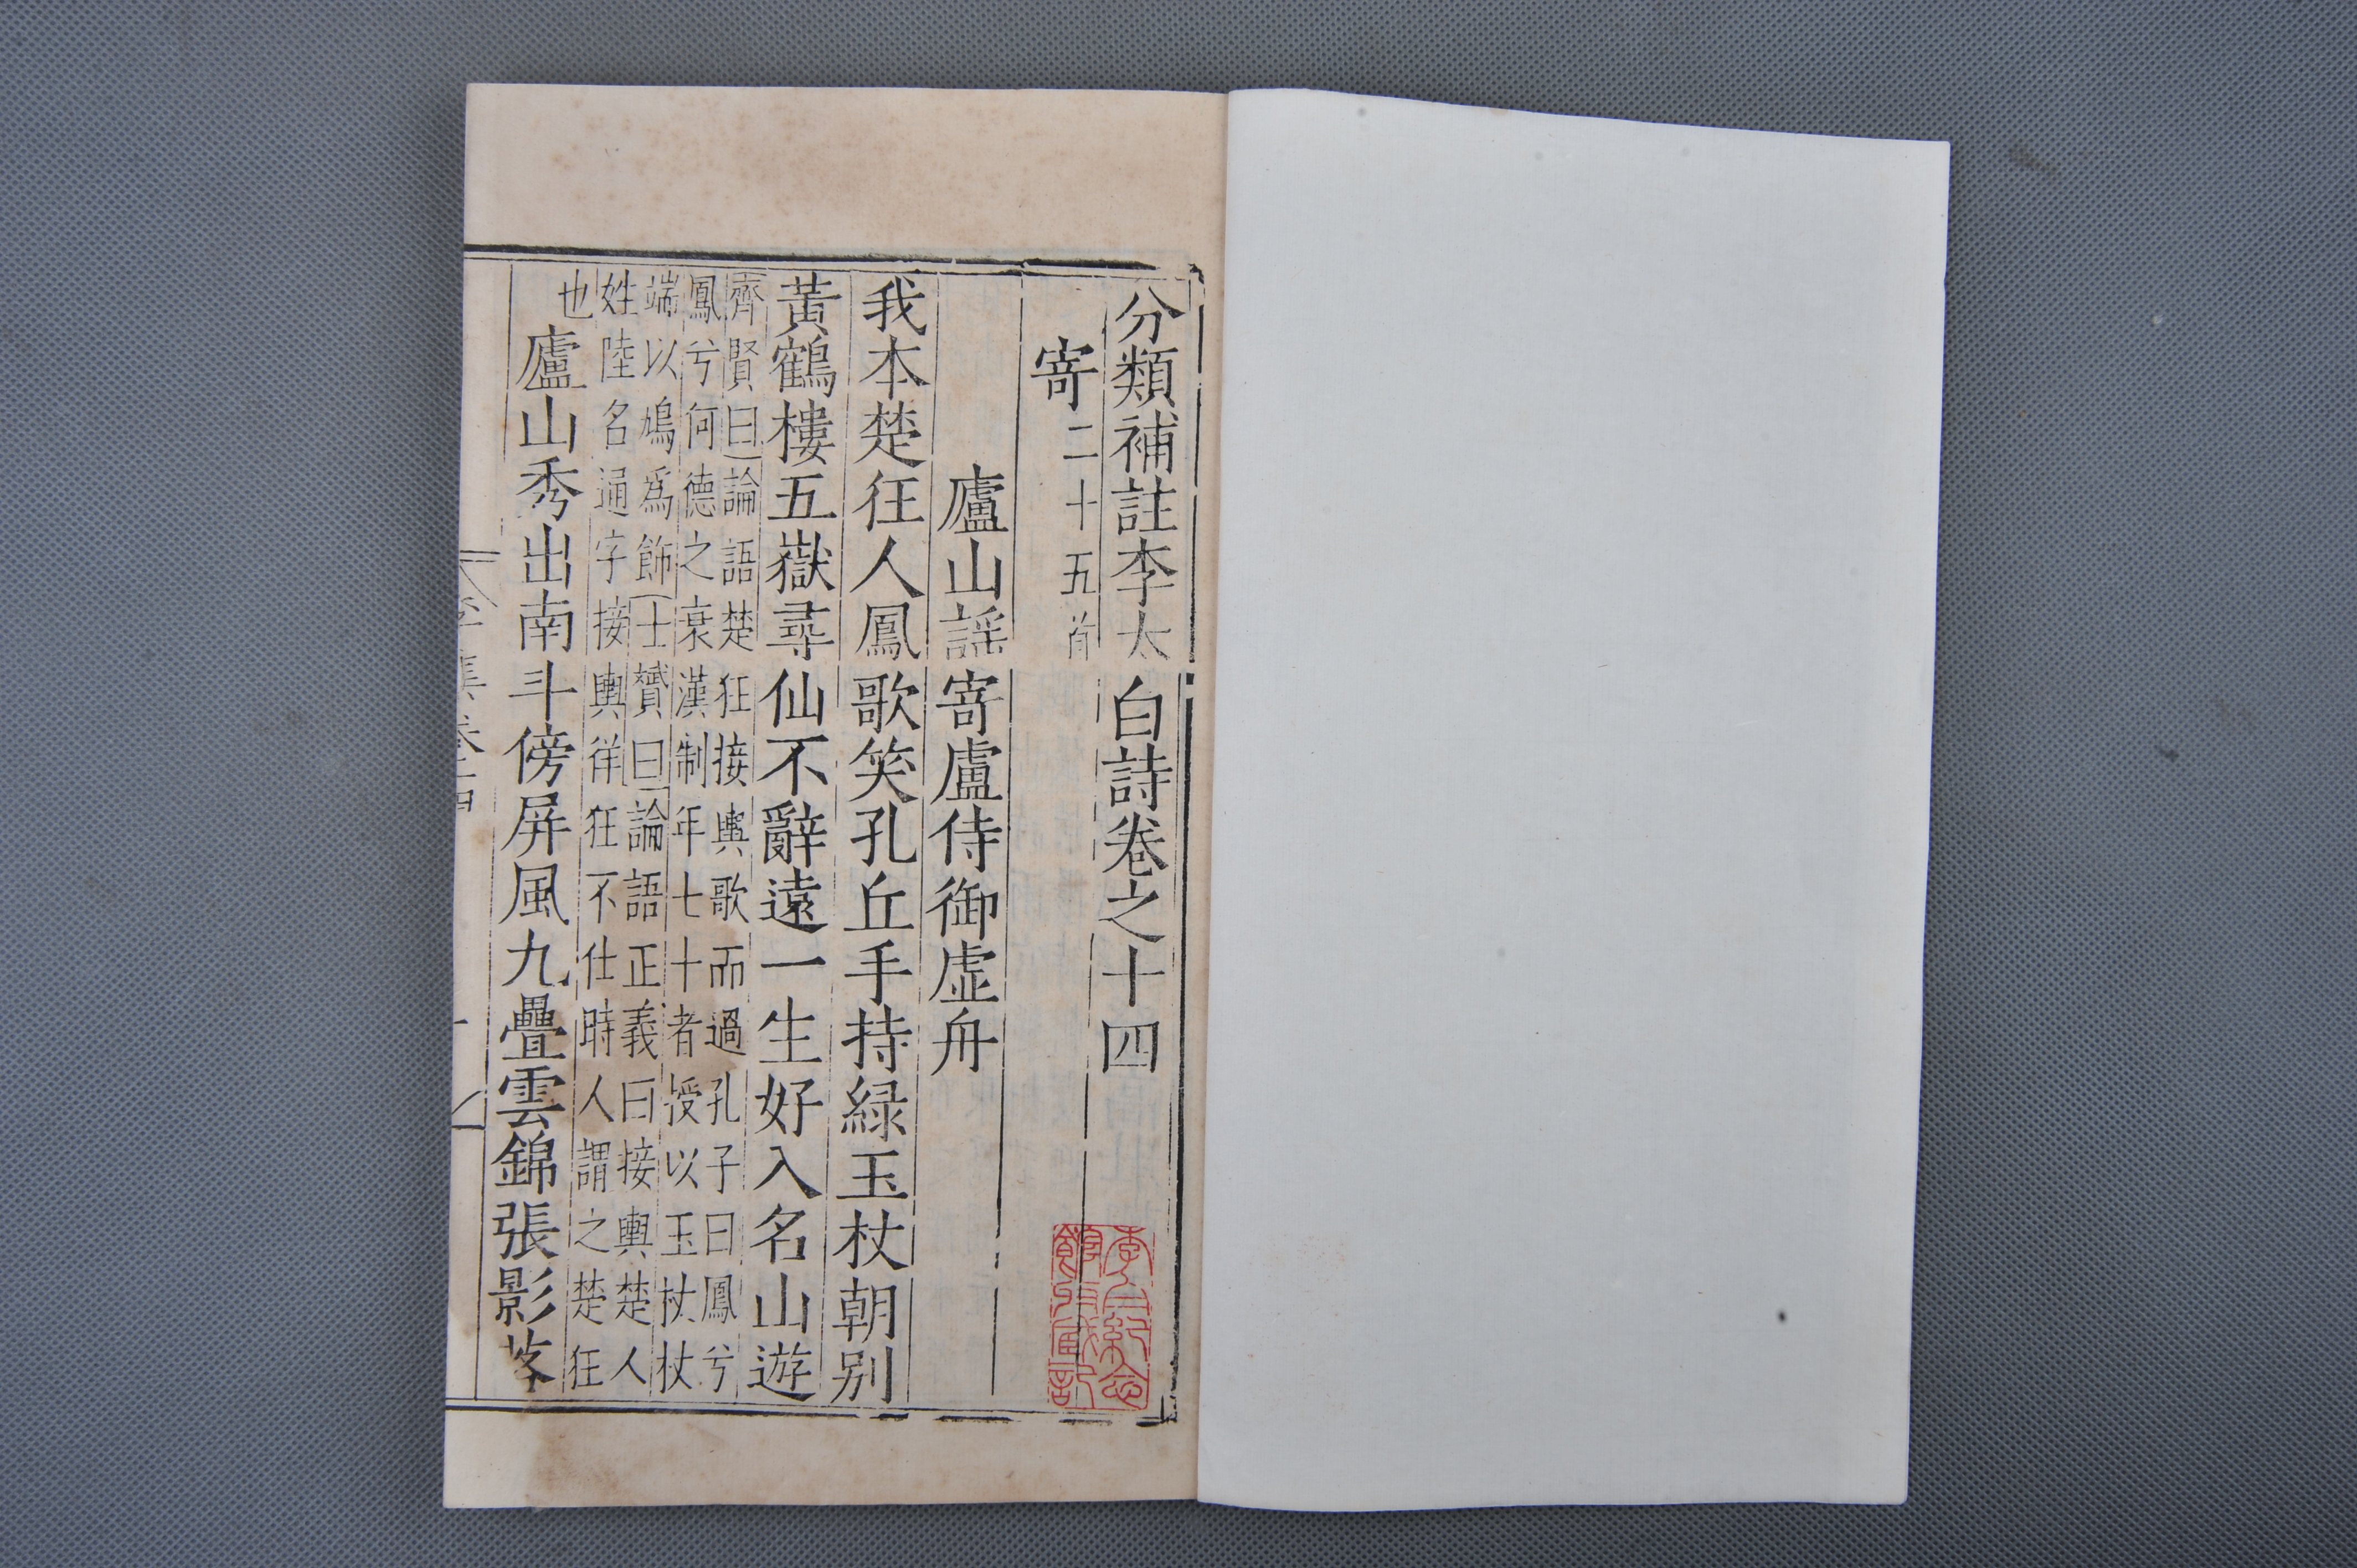 分類補註李太白詩卷之十四
寄二十五首
廬山謡寄盧侍御虚舟
我本楚狂人鳳歌笑孔丘手持緑玉杖朝别
黃鶴樓五嶽尋仙不辭遠一生好入名山遊
齊賢曰論語楚狂接輿歌而過孔子曰鳳兮
鳳兮何德之衰漢制年七十者授以玉杖杖
端以鳩爲飾士贇曰論語正義曰接輿楚人
姓陸名通字接輿徉狂不仕時人謂之楚狂
也
廬山秀出南斗傍屏風九疊雲錦張影落
李白紀念館收藏記